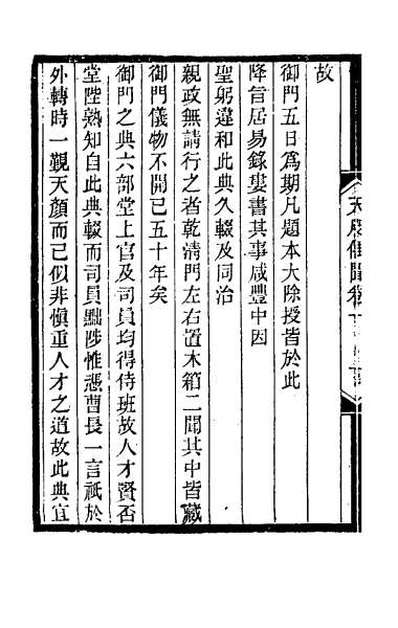 故
御門五日為期凡題本大除授皆於此
降旨居易錄婁書其事咸豐中因
聖躬違和此典久輟及同治
親政無請行之者乾清門左右置木箱二聞其中皆藏
御門儀物不開已五十年矣
御門之典六部堂上官及司員均得侍班故人才賢否
堂陛熟知自此典輟而司員黜陟惟憑曹長一言祇於
外轉時一覲天顏而已似非慎重人才之道故此典宜